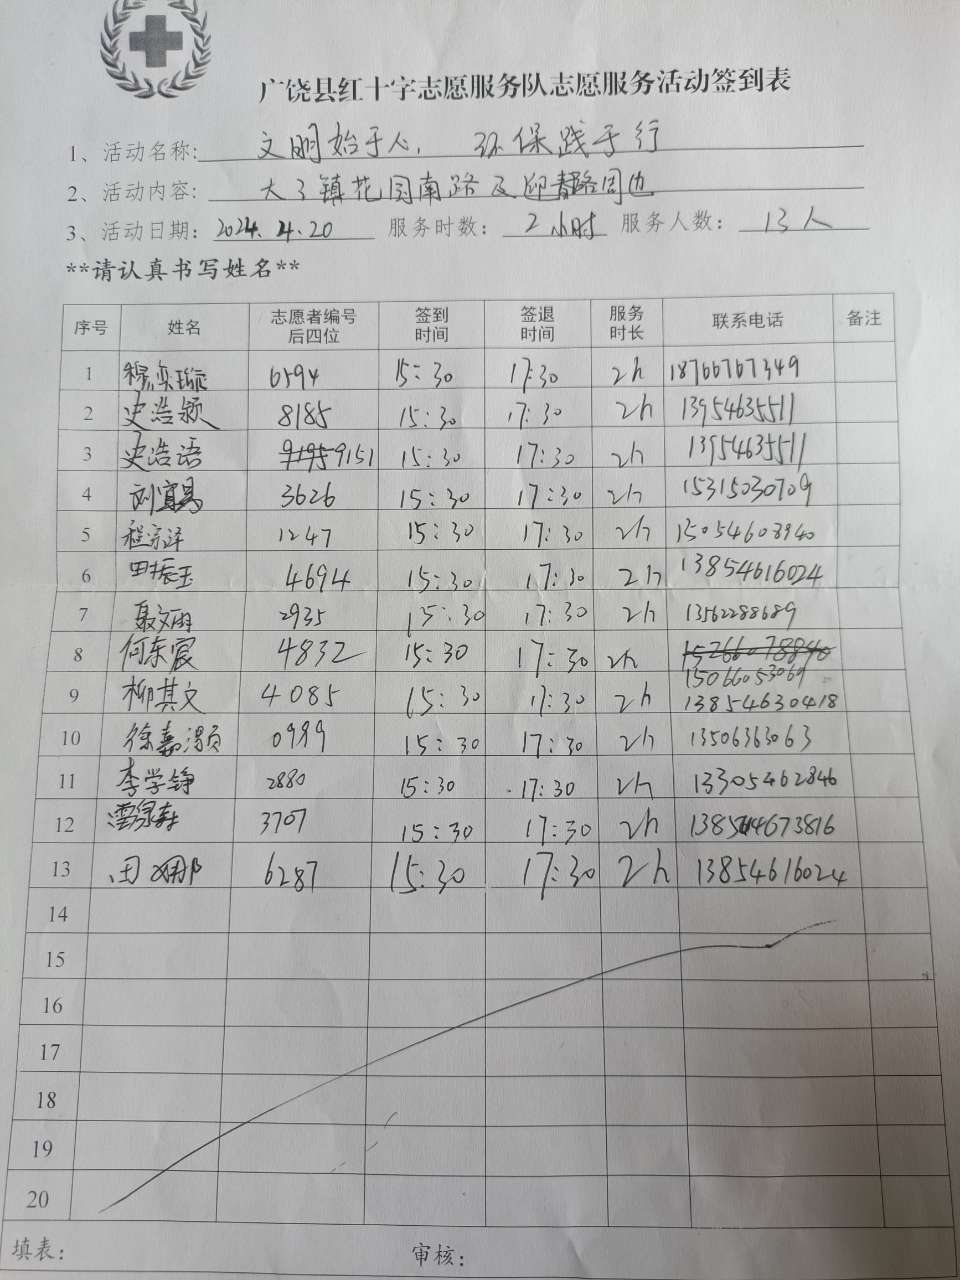 广饶县红十字志愿服务队志愿服务活动签到表
1、活动名称: 文明始于人, 环保践于行
2、活动内容: 大王镇花园南路及迎春路周边
3、活动日期: 2024.4.20 服务时数: 2小时 服务人数: 13人
**请认真书写姓名**
序号 姓名 志愿者编号后四位 签到时间 签退时间 服务时长 联系电话 备注
1 6594 15:30 17:30 2h 18766767349
2 史浩颖 8185 15:30 17:30 2h 13954635511
3 史浩语 9195 9151 15:30 17:30 2h 13954635511
4 刘宜昌 3626 15:30 17:30 2h 15315030709
5 程宗泽 1247 15:30 17:30 2h 15054608940
6 田振玉 4694 15:30 17:30 2h 13854616024
7 聂文雨 2935 15:30 17:30 2h 13562288689
8 何东宸 4832 15:30 17:30 2h 15266078840
15066053069
9 柳其文 4085 15:30 17:30 2h 13854630418
10 徐嘉灏 0989 15:30 17:30 2h 13506363063
11 李学铮 2880 15:30 17:30 2h 13305462846
12 3707 15:30 17:30 2h 13854673816
13 田娜 6287 15:30 17:30 2h 13854616024
14
15
16
17
18
19
20
填表: 审核: